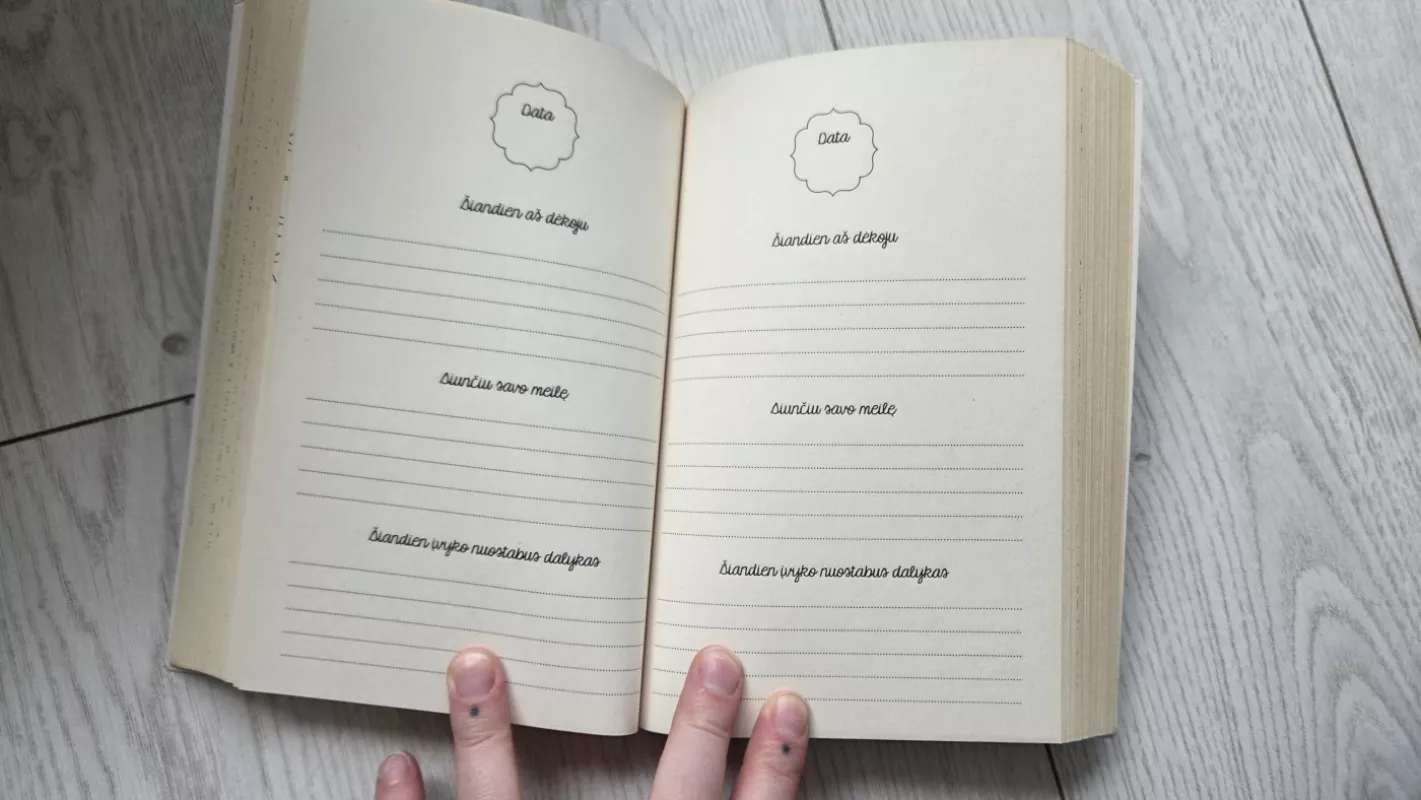 Data
Šiandien aš dėkoju
Siunčiu savo meilę
Šiandien įvyko nuostabus dalykas
Data
Šiandien aš dėkoju
Siunčiu savo meilę
Šiandien įvyko nuostabus dalykas